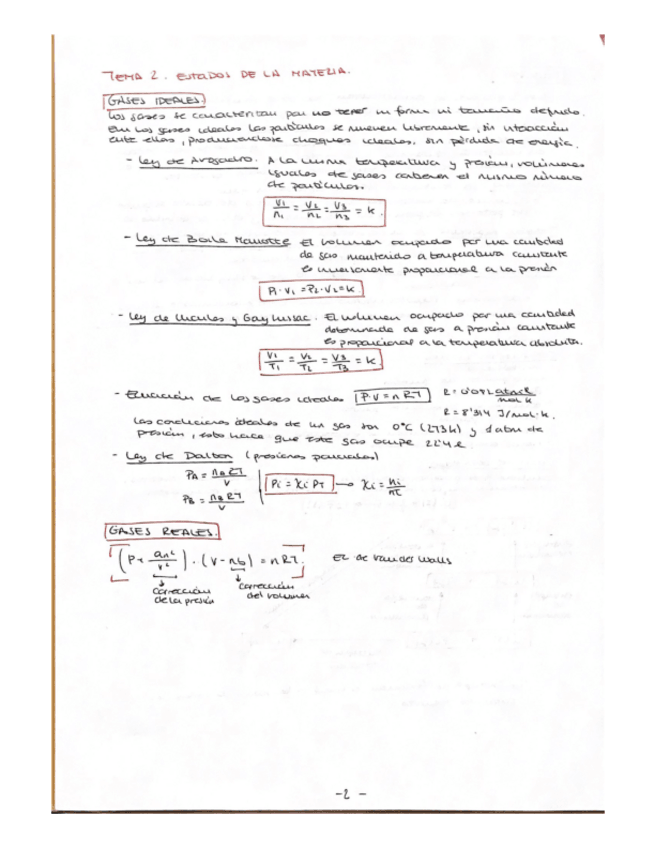 TEMA 2. ESTADOS DE LA MATERIA.
GASES IDEALES.
Los gases se caracterizan por no tener ni forma ni tamaño definido.
En los gases ideales las partículas se mueven libremente, sin interacción
entre ellas, produciendose choques ideales, sin pérdida de energía.
- Ley de Avogadro. A la misma temperatura y presión, volúmenes
iguales de gases contienen el mismo número
de partículas.
V1/n1 = V2/n2 = V3/n3 = k.
- Ley de Boile Mariotte El volumen ocupado por una cantidad
de gas mantenido a temperatura constante
es inversamente proporcional a la presión
P1·V1 = P2·V2 = k.
- Ley de Charles y Gay Lussac. El volumen ocupado por una cantidad
determinada de gas a presión constante
es proporcional a la temperatura absoluta.
V1/T1 = V2/T2 = V3/T3 = k.
- Ecuación de los gases ideales P·V = nRT R = 0'082 atm·l/mol·k
R = 8'314 J/mol·k.
Las condiciones ideales de un gas son 0°C (273k) y 1 atm de
presión, esto hace que este gas ocupe 22'4 l.
- Ley de Dalton (presiones parciales)
PA = nA RT/V
Pi = Xi PT → Xi = ni/nT
PB = nB RT/V
GASES REALES.
(P + an²/V²) · (V - nb) = nRT. EC de van der Walls
corrección de la presión
corrección del volumen
-2-